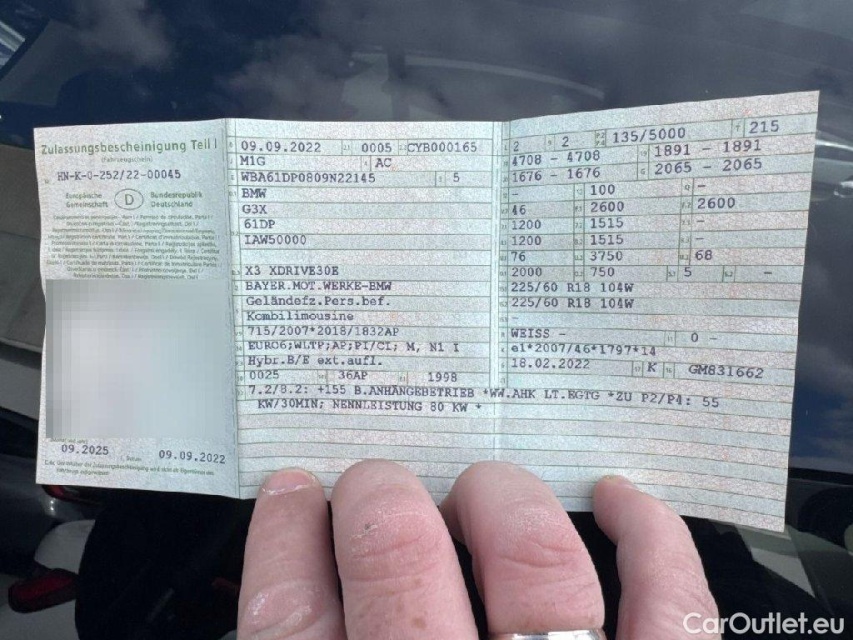 Zulassungsbescheinigung Teil I
(Fahrzeugschein)
HN-K-0-252/22-00045
Europäische Gemeinschaft D Bundesrepublik Deutschland
09.2025
09.09.2022
09.09.2022 0005 CYB000165
M1G AC
WBA61DP0809N22145 5
BMW
G3X
61DP
IAW50000
X3 XDRIVE30E
BAYER.MOT.WERKE-BMW
Geländefz.Pers.bef.
Kombilimousine
715/2007*2018/1832AP
EURO6;WLTP;AP;PI/CI; M, N1 I
Hybr.B/E ext.aufl.
0025 36AP 1998
2 2 135/5000 215
4708 - 4708 1891 - 1891
1676 - 1676 2065 - 2065
- 100 -
46 2600 2600
1200 1515 -
1200 1515 -
76 3750 68
2000 750 5 -
225/60 R18 104W
225/60 R18 104W
-
WEISS - 0 -
e1*2007/46*1797*14
18.02.2022 K GM831662
7.2/8.2: +155 B.ANHÄNGEBETRIEB *WW.AHK LT.EGTG *ZU P2/P4: 55
KW/30MIN; NENNLEISTUNG 80 KW *
CarOutlet.eu